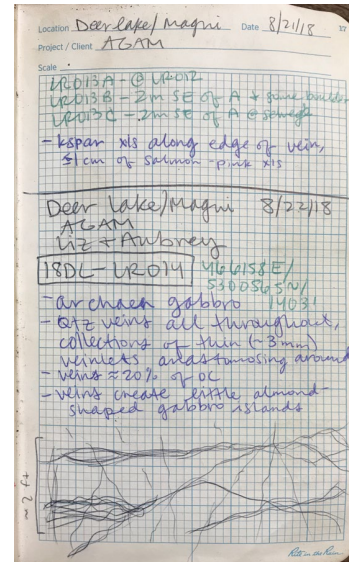 Location Deer lake/Magni Date 8/21/18 37
Project / Client AGAM
Scale
LR013A - @ LR012
LR013B - 2m SE of A + same boulder
LR013C - 2m SE of A @
- kspar xls along edge of vein,
≤1cm of salmon-pink xls
Deer lake/Magni 8/22/18
AGAM
Liz + Aubrey
18DL-LR014 466158E/
5300565N/
1403'
- archaen gabbro
- Qtz veins all throughout,
collections of thin (~3mm)
veinlets anastomosing around
- veins ≈ 20% of OC
- veins create little almond-
shaped gabbro islands
~2 ft
Rite in the Rain